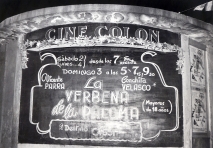 CINE COLON
Sábado 2 desde las 7
Lunes 4
Domingo 3 a las 5-7,9,30
Vicente Conchita
PARRA VELASCO
LA
VERBENA
de la PALOMA
Mayores
de 18 años
Destino